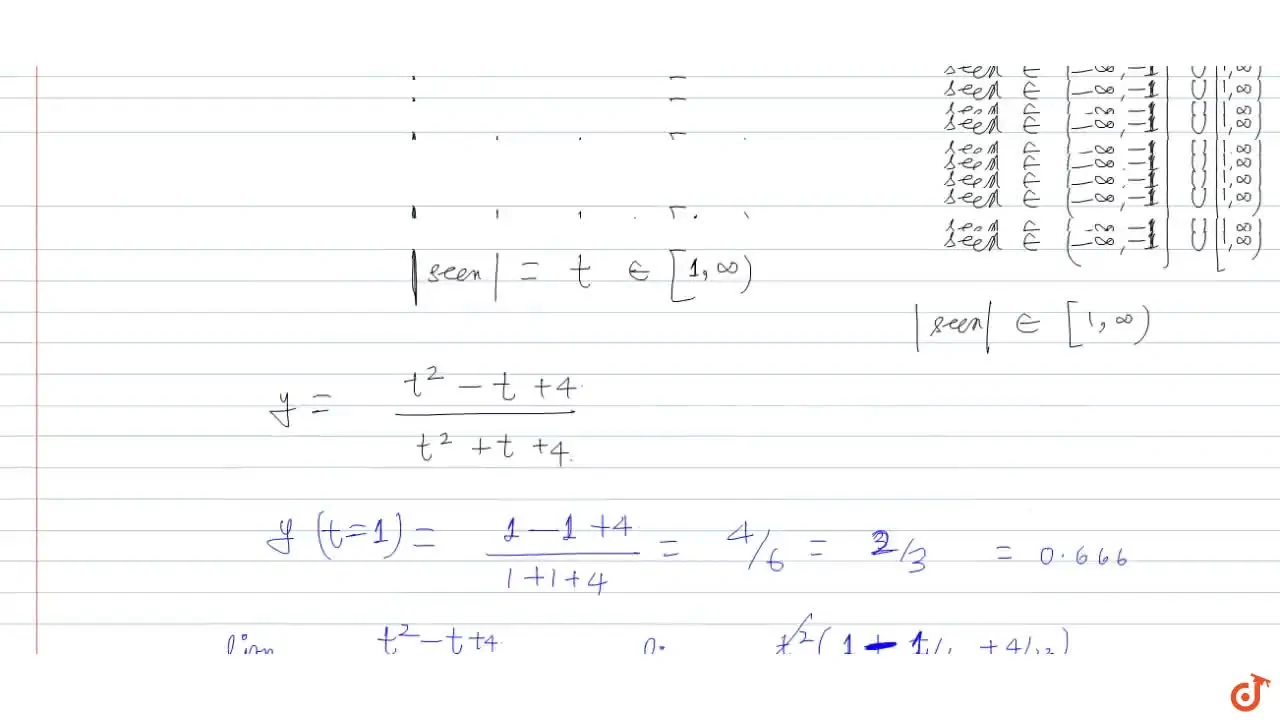 secx ∈ (-∞, -1] ∪ [1, ∞)
secx ∈ (-∞, -1] ∪ [1, ∞)
secx ∈ (-∞, -1] ∪ [1, ∞)
secx ∈ (-∞, -1] ∪ [1, ∞)
secx ∈ (-∞, -1] ∪ [1, ∞)
secx ∈ (-∞, -1] ∪ [1, ∞)
secx ∈ (-∞, -1] ∪ [1, ∞)
secx ∈ (-∞, -1] ∪ [1, ∞)
secx ∈ (-∞, -1] ∪ [1, ∞)
secx ∈ (-∞, -1] ∪ [1, ∞)
|secx| = t ∈ [1, ∞)
|secx| ∈ [1, ∞)
y = (t² - t + 4) / (t² + t + 4)
y (t=1) = (1 - 1 + 4) / (1 + 1 + 4) = 4/6 = 2/3 = 0.666
lim t² - t + 4